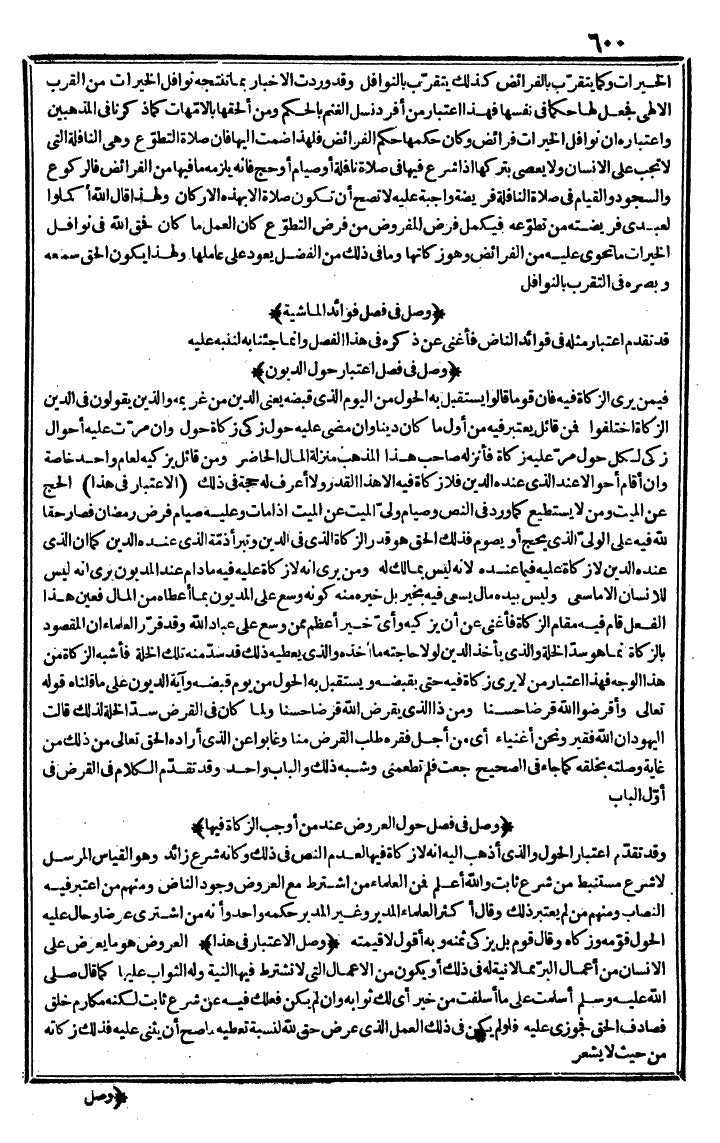 ٦٠٠
الخيرات وكما يتقرب بالفرائض كذلك يتقرب بالنوافل وقد وردت الاخبار بما تنتجه نوافل الخيرات من القرب
الالهى فجعل لها حكما فى نفسها فهذا اعتبار من أفرد نسل الغنم بالحكم ومن ألحقها بالامهات كما ذكرنا فى المذهبين
واعتباره ان نوافل الخيرات فرائض وكان حكمها حكم الفرائض فلهذا ضمت اليها فان صلاة التطوّع وهى النافلة التى
لا تجب على الانسان ولا يعصى بتركها اذا شرع فيها فى صلاة نافلة أو صيام أو حج فانه يلزمه ما فيها من الفرائض فالركوع
والسجود والقيام فى صلاة النافلة فريضة واجبة عليه لا تصح أن تكون صلاة الا بهذه الاركان ولهذا قال الله أكملوا
لعبدى فريضته من تطوّعه فيكمل فرض المفروض من فرض التطوّع كان العمل ما كان فحق الله فى نوافل
الخيرات ما تحوى عليه من الفرائض وهو زكاتها وما فى ذلك من الفضل يعود على عاملها ولهذا يكون الحق سمعه
وبصره فى التقرب بالنوافل
﴿وصل فى فصل فوائد الماشية﴾
قد تقدم اعتبار مثله فى فوائد الناض فأغنى عن ذكره فى هذا الفصل وانما جئنا به لننبه عليه
﴿وصل فى فصل اعتبار حول الديون﴾
فيمن يرى الزكاة فيه فان قوما قالوا يستقبل به الحول من اليوم الذى قبضه يعنى الدين من غريمه والذين يقولون فى الدين
الزكاة اختلفوا فمن قائل يعتبر فيه من أول ما كان دينا وان مضى عليه حول زكى زكاة حول وان مرّت عليه أحوال
زكى لكل حول مرّ عليه زكاة فأنزله صاحب هذا المذهب منزلة المال الحاضر ومن قائل يزكيه لعام واحد خاصة
وان أقام أحوالا عند الذى عنده الدين فلا زكاة فيه الا هذا القدر ولا أعرف له حجة فى ذلك (الاعتبار فى هذا) الحج
عن الميت ومن لا يستطيع كما ورد فى النص وصيام ولىّ الميت عن الميت اذا مات وعليه صيام فرض رمضان فصار حقا
لله فيه على الولىّ الذى يحج أو يصوم فذلك الحق هو قدر الزكاة الذى فى الدين وتبرأ ذمّة الذى عنده الدين كما ان الذى
عنده الدين لا زكاة عليه فيما عنده لانه ليس بمالك له ومن يرى انه لا زكاة عليه فيه ما دام عند المديون يرى انه ليس
للانسان الا ما سعى وليس بيده مال يسعى فيه بخير بل خيره منه كونه وسع على المديون بما أعطاه من المال فعين هذا
الفعل قام فيه مقام الزكاة فأغنى عن أن يزكيه وأىّ خير أعظم ممن وسع على عباد الله وقد قرّر العلماء ان المقصود
بالزكاة انما هو سدّ الخلة والذى يأخذ الدين لولا حاجته ما أخذه والذى يعطيه ذلك قد سدّ منه تلك الخلة فأشبه الزكاة من
هذا الوجه فهذا اعتبار من لا يرى زكاة فيه حتى يقبضه ويستقبل به الحول من يوم قبضه وآية الديون على ما قلناه قوله
تعالى وأقرضوا الله قرضا حسنا ومن ذا الذى يقرض الله قرضا حسنا ولما كان فى القرض سدّ الخلة لذلك قالت
اليهود ان الله فقير ونحن أغنياء أى من أجل فقره طلب القرض منا وغابوا عن الذى أراده الحق تعالى من ذلك من
غاية وصلته بخلقه كما جاء فى الصحيح جعت فلم تطعمنى وشبه ذلك والباب واحد وقد تقدّم الكلام فى القرض فى
أوّل الباب
﴿وصل فى فصل حول العروض عند من أوجب الزكاة فيها﴾
وقد تقدّم اعتبار الحول والذى أذهب اليه انه لا زكاة فيها لعدم النص فى ذلك وكانه شرع زائد وهو القياس المرسل
لا شرع مستنبط من شرع ثابت والله أعلم فمن العلماء من اشترط مع العروض وجود الناض ومنهم من اعتبر فيه
النصاب ومنهم من لم يعتبر ذلك وقال أكثر العلماء المدير وغير المدير حكمه واحد وأنه من اشترى عرضا وحال عليه
الحول قوّمه وزكاه وقال قوم بل يزكى ثمنه وبه أقول لا قيمته ﴿وصل الاعتبار فى هذا﴾ العروض هو ما يعرض على
الانسان من أعمال البرّ مما لا نية له فى ذلك أو يكون من الاعمال التى لا تشترط فيها النية وله الثواب عليها كما قال صلى
الله عليه وسلم أسلمت على ما أسلفت من خير أى لك ثوابه وان لم يكن فعلك فيه عن شرع ثابت لكنه مكارم خلق
فصادف الحق فجوزى عليه فلو لم يكن فى ذلك العمل الذى عرض حق لله لنسبة تعطيه ما صح أن يثنى عليه فذلك زكاته
من حيث لا يشعر
﴿وصل